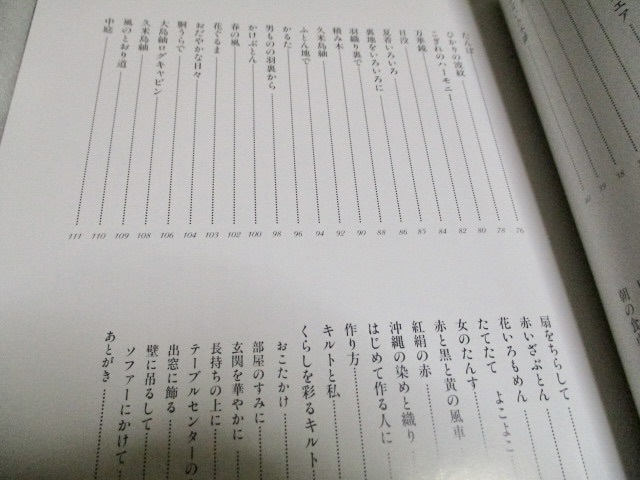 たんぽぽ 76
ひかりの波紋 78
こぎれのハーモニー 80
万華鏡 82
日没 84
夏着いろいろ 85
裏地をいろいろに 86
羽織り裏で 88
積み木 90
久米島紬 92
ふとん地で 94
かるた 96
男ものの羽裏から 98
かけぶとん 100
春の風 102
花ぐるま 103
おだやかな日々 104
胴うらで 106
大島紬ログキャビン 108
久米島紬 109
風のとおり道 110
中庭 111
扇をちらして
赤いざぶとん
花いろもめん
たてたて よこよこ
女のたんす
赤と黒と黄の風車
紅絹の赤
沖縄の染めと織り
はじめて作る人に
作り方
キルトと私
くらしを彩るキルト
おこたかけ
部屋のすみに
玄関を華やかに
長持ちの上に
テーブルセンターの
出窓に飾る
壁に吊るして
ソファーにかけて
あとがき